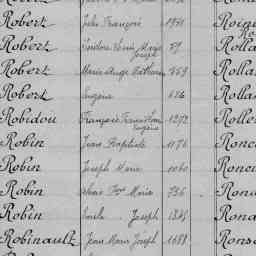 Robert Jules François 1951 Roig
Robert Isidore Louis Marie Joseph 59 Rolla
Robert Marie Ange Mathurin 959 Rolla
Robert Eugène 626 Rolla
Robidou François Eugène 1272 Roller
Robin Jean Baptiste 1176 Ronc
Robin Joseph Marie 1060 Ronc
Robin Marie 736 Rona
Robin Emile Joseph Rona
Robinault Jean Marie Joseph 1088 Rons